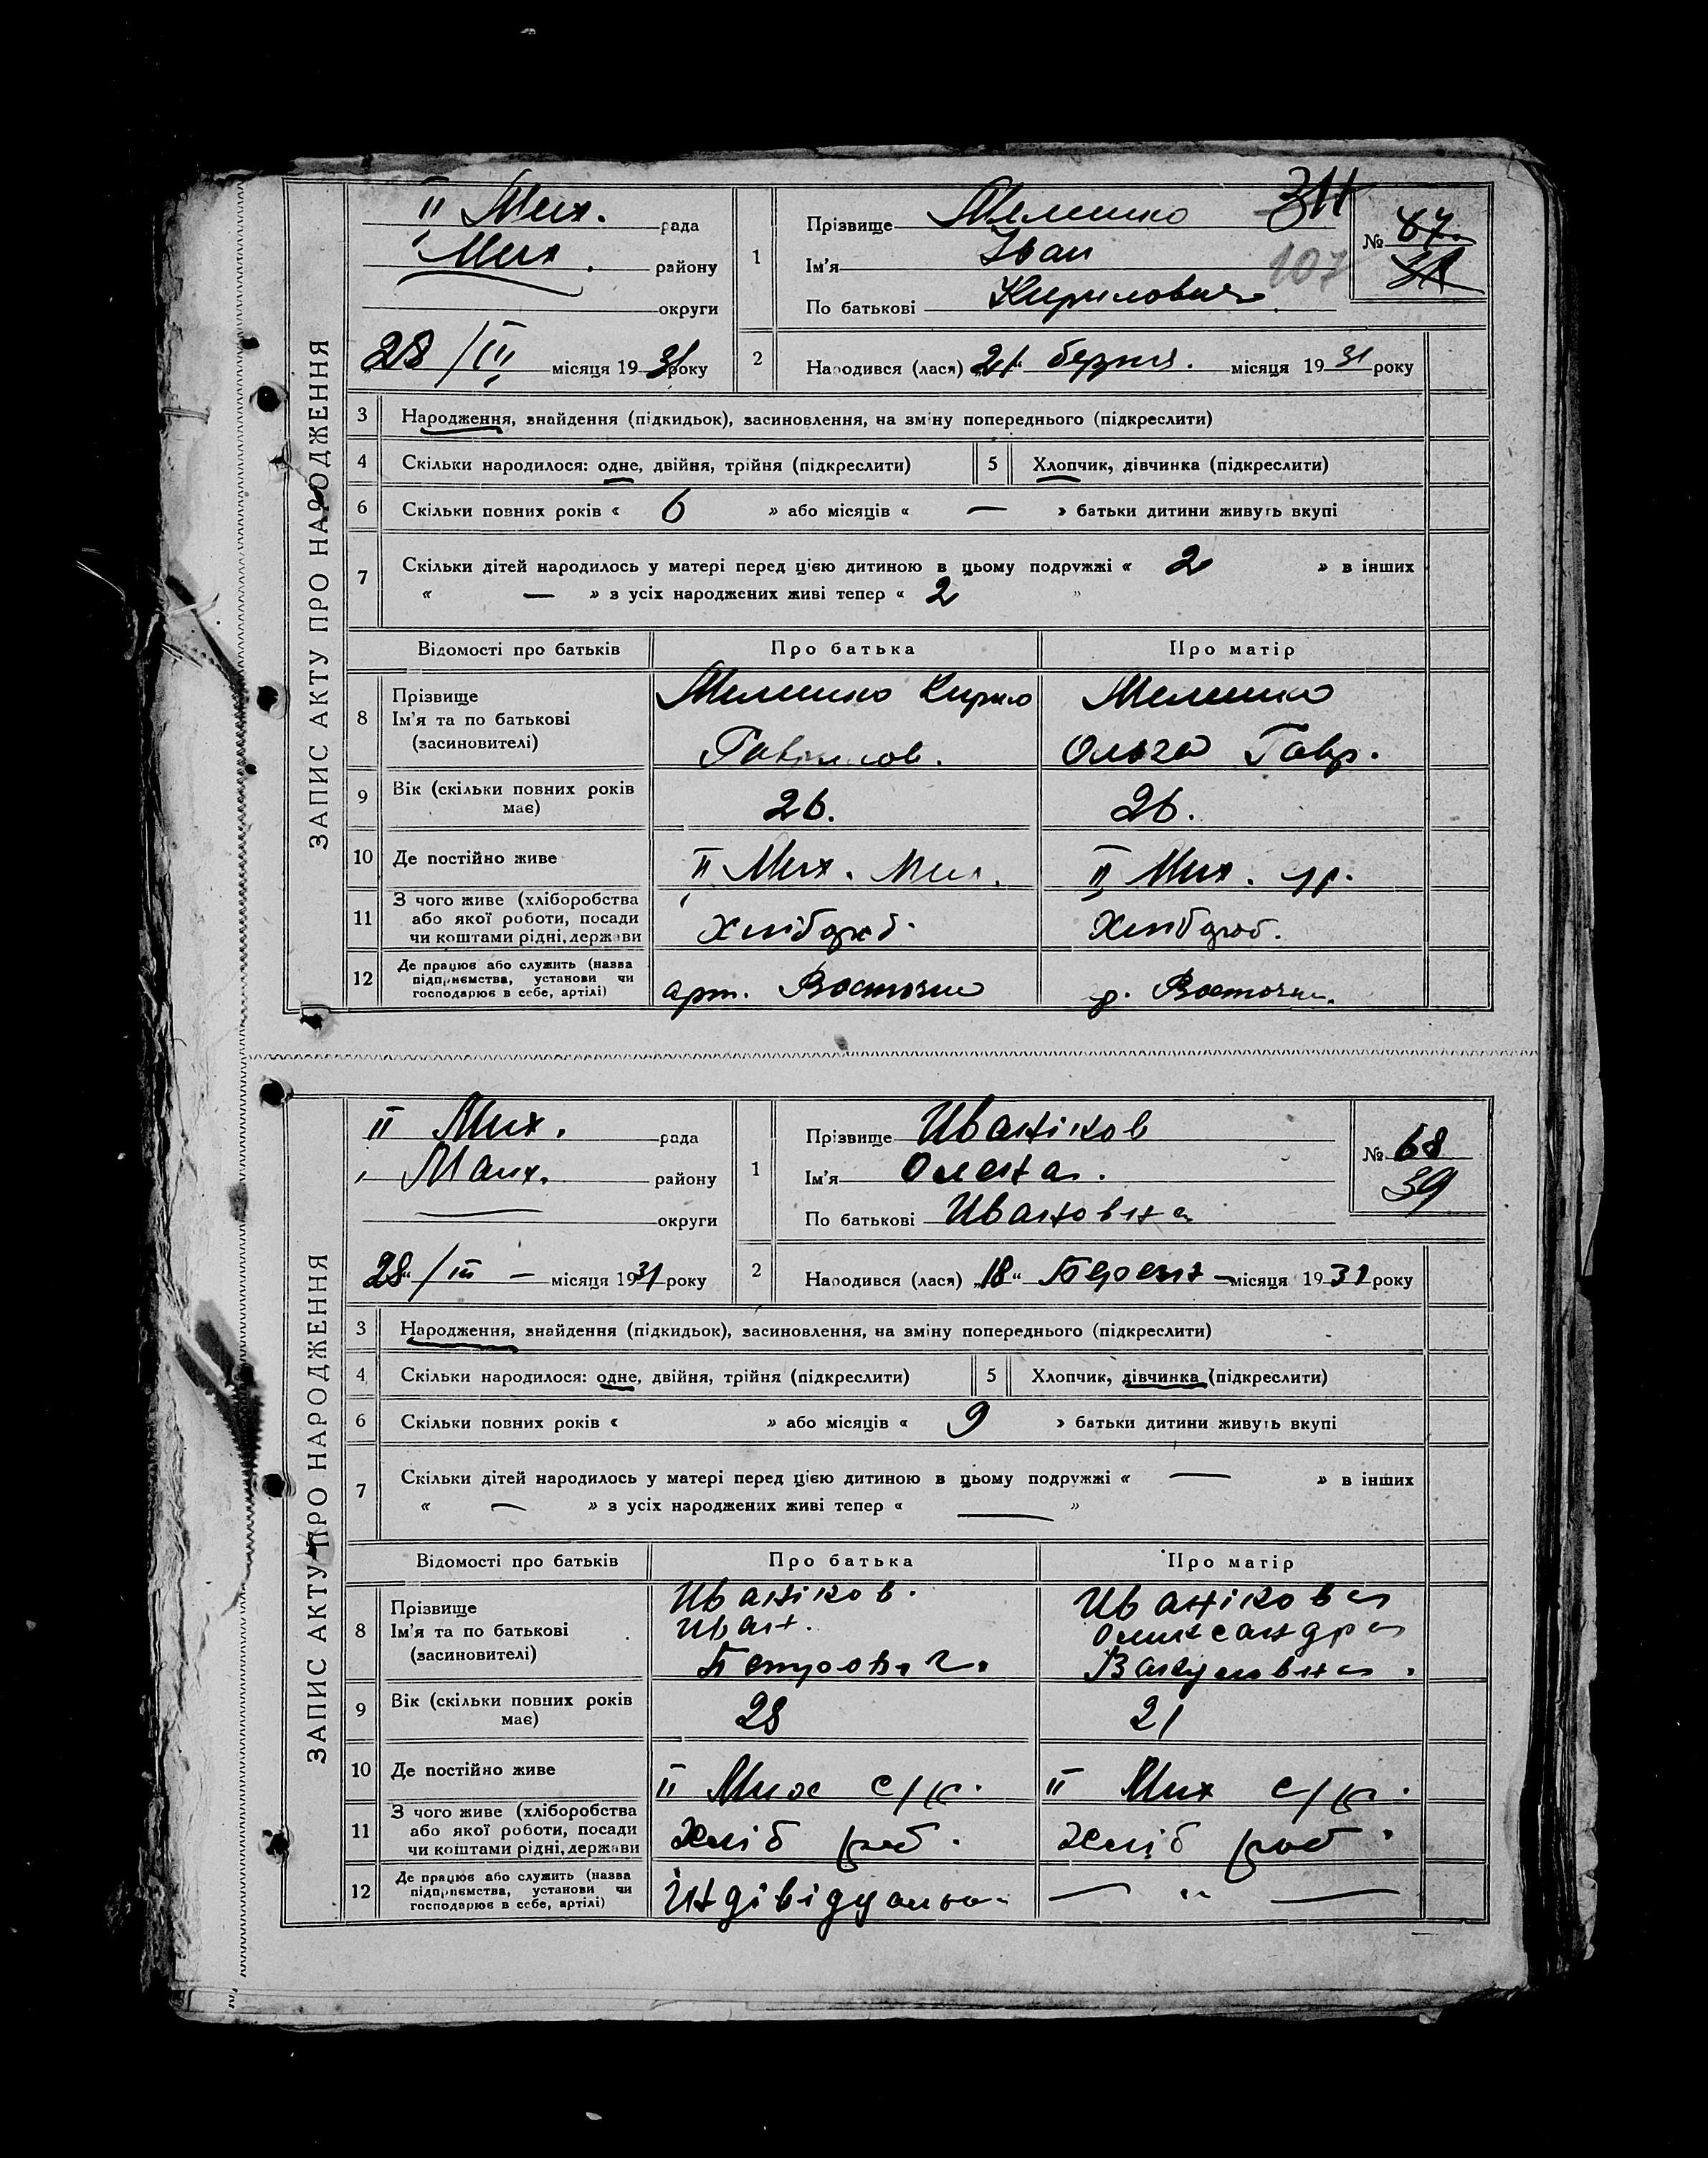 ЗАПИС АКТУ ПРО НАРОДЖЕННЯ
ІІ Мих. рада
Мих. району
округи
28/ІІІ місяця 1931 року
1 Прізвище Мелешко
Ім'я Іван
По батькові Кирилович
311
107
№ 67.
2 Народився (лася) „21“ березня. місяця 1931 року
3 Народження, знайдення (підкидьок), засиновлення, на зміну попереднього (підкреслити)
4 Скільки народилося: одне, двійня, трійня (підкреслити) 5 Хлопчик, дівчинка (підкреслити)
6 Скільки повних років « 6 » або місяців « — » батьки дитини живуть вкупі
7 Скільки дітей народилось у матері перед цією дитиною в цьому подружжі « 2 » в інших
« — » з усіх народжених живі тепер « 2 »
Відомості про батьків Про батька Про матір
8 Прізвище Мелешко Кирило Мелешко
Ім'я та по батькові
(засиновителі) Ольга Гавр.
9 Вік (скільки повних років 26. 26.
має)
10 Де постійно живе ІІ Мих. ІІ Мих.
11 З чого живе (хліборобства
або якої роботи, посади Хлібороб. Хлібороб.
чи коштами рідні, держави
12 Де працює або служить (назва
підприємства, установи чи арт.
господарює в себе, артілі)
ЗАПИС АКТУ ПРО НАРОДЖЕННЯ
ІІ Мих. рада
району
округи
„28“/ІІІ — місяця 1931 року
1 Прізвище Иваніков
Ім'я Олена.
По батькові Ивановна
№ 68
39
2 Народився (лася) „18“ місяця 1931 року
3 Народження, знайдення (підкидьок), засиновлення, на зміну попереднього (підкреслити)
4 Скільки народилося: одне, двійня, трійня (підкреслити) 5 Хлопчик, дівчинка (підкреслити)
6 Скільки повних років « » або місяців « 9 » батьки дитини живуть вкупі
7 Скільки дітей народилось у матері перед цією дитиною в цьому подружжі « — » в інших
« — » з усіх народжених живі тепер « — »
Відомості про батьків Про батька Про матір
8 Прізвище Иваніков. Иванікова
Ім'я та по батькові Иван. Олександра
(засиновителі) Петрович.
9 Вік (скільки повних років 28 21
має)
10 Де постійно живе ІІ Мих ІІ Мих
11 З чого живе (хліборобства
або якої роботи, посади Хліб роб. Хліб роб.
чи коштами рідні, держави
12 Де працює або служить (назва
підприємства, установи чи — " —
господарює в себе, артілі)